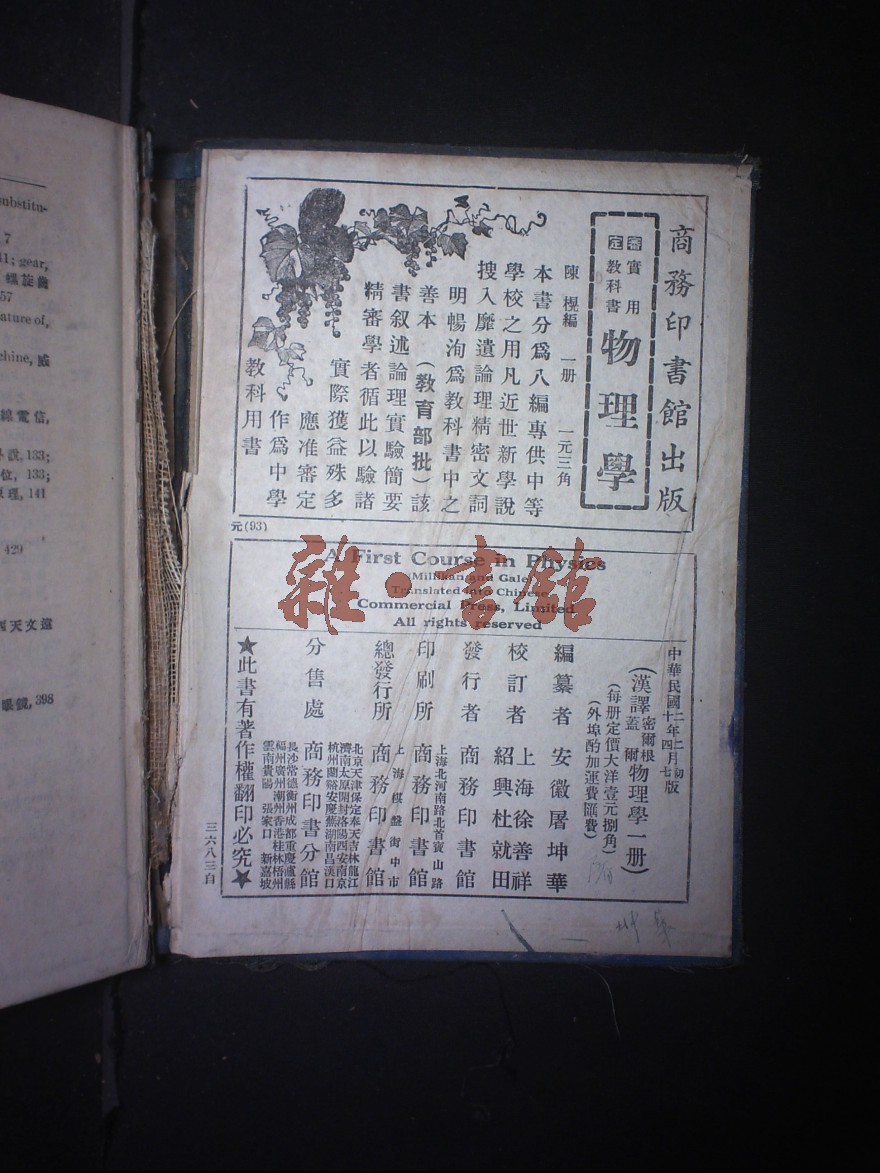 substitu-
7
41; gear,
57
ature of,
chine, 威
線電信,
說, 133;
位, 133;
原理, 141
429
天文遠
眼鏡, 398
商務印書館出版
審定
實用
教科書
物理學
陳榥編 一册 一元三角
本書分爲八編專供中等
學校之用凡近世新學說
搜入靡遺論理精密文詞
明暢洵爲教科書中之
善本（教育部批）該
書叙述論理實驗簡要
精審學者循此以驗諸
實際獲益殊多
應准審定
作爲中學
教科用書
元(93)
A First Course in Physics
(Millikan and Gale)
Translated into Chinese
Commercial Press, Limited
All rights reserved
中華民國二年二月初版
十四七
(漢譯密爾根蓋爾物理學一册)
(每册定價大洋壹元捌角)
(外埠酌加運費匯費)
編纂者 安徽屠坤華
校訂者 上海徐善祥
紹興杜就田
發行者 商務印書館
上海北河南路北首寶山路
印刷所 商務印書館
上海棋盤街中市
總發行所 商務印書館
分售處 商務印書分館
北京天津保定奉天吉林龍江
濟南太原開封洛陽西安南京
杭州蘭谿安慶蕪湖南昌漢口
長沙常德衡州成都重慶瀘縣
福州廣州潮州香港桂林梧州
雲南貴陽 張家口 新嘉坡
★此書有著作權翻印必究★
三六八三自
雜·書館